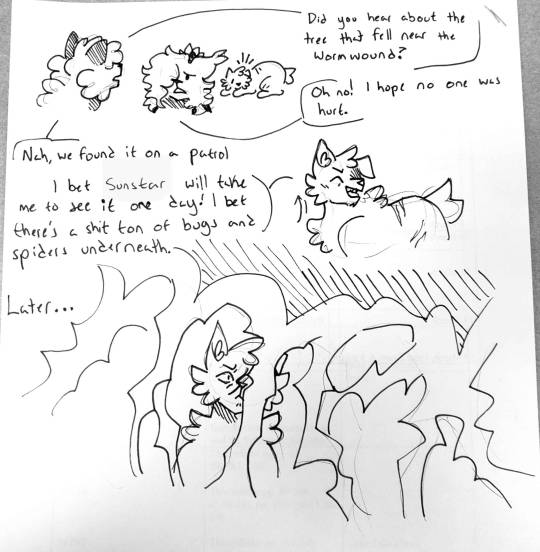 Did you hear about the
tree that fell near the
Wormwound?
Oh no! I hope no one was
hurt.
Nah, we found it on a patrol
I bet Sunstar will take
me to see it one day! I bet
there's a shit ton of bugs and
spiders underneath.
Later...